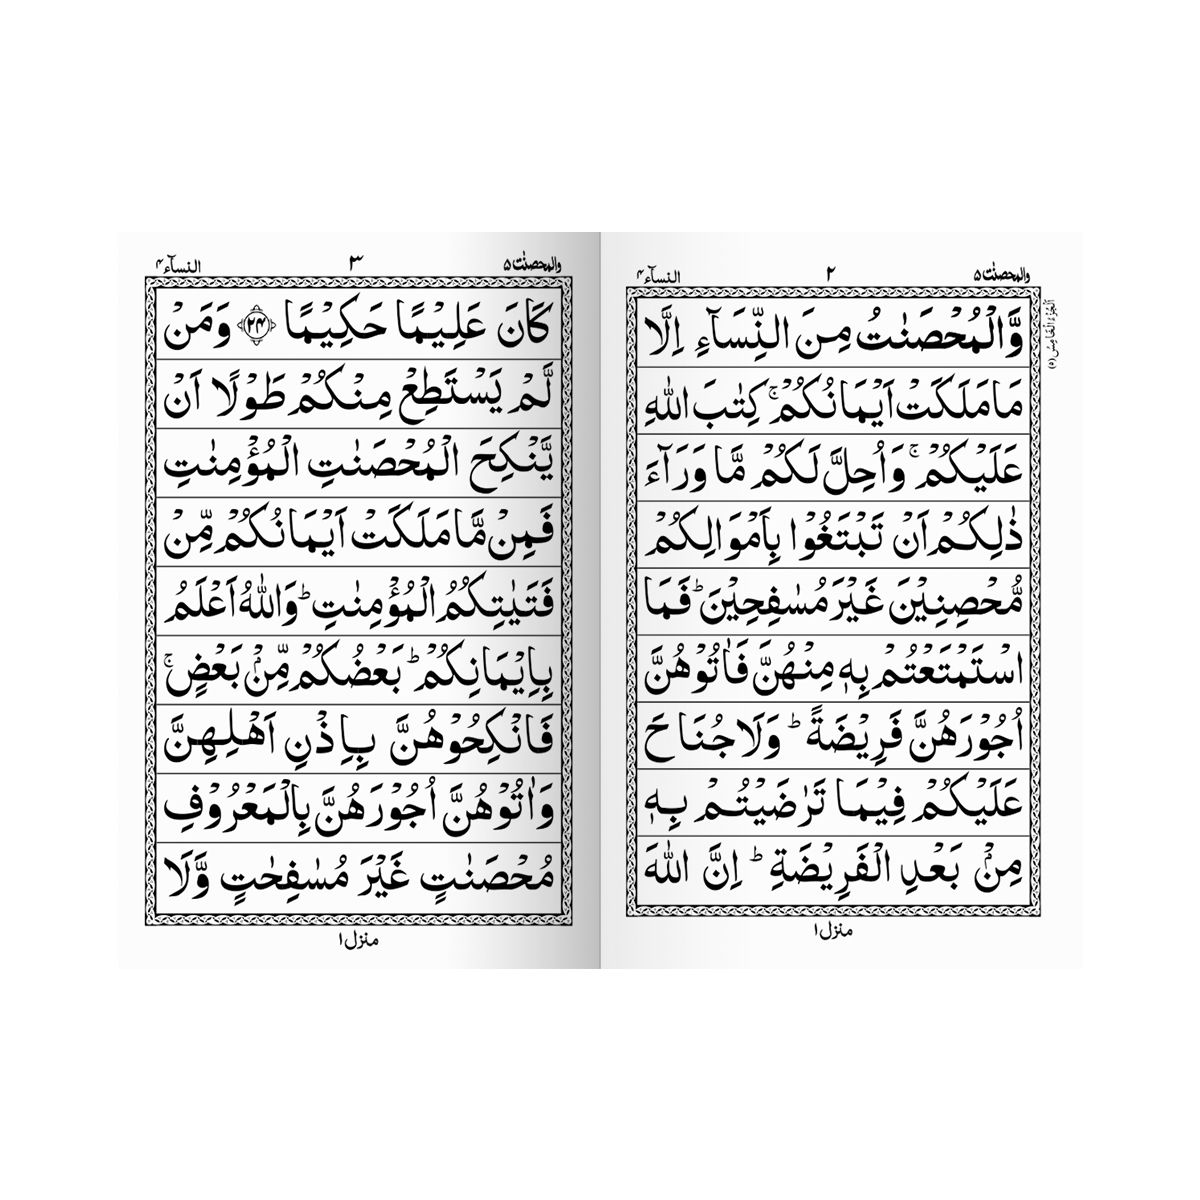 والمحصنٰت ۵
۲
النسآء ۴
اَلْجُزْءُ الْخَامِسُ (۵)
وَّالْمُحْصَنٰتُ مِنَ النِّسَآءِ اِلَّا
مَا مَلَكَتْ اَيْمَانُكُمْ ۚ كِتٰبَ اللّٰهِ
عَلَيْكُمْ ۚ وَاُحِلَّ لَكُمْ مَّا وَرَآءَ
ذٰلِكُمْ اَنْ تَبْتَغُوْا بِاَمْوَالِكُمْ
مُّحْصِنِيْنَ غَيْرَ مُسٰفِحِيْنَ ؕ فَمَا
اسْتَمْتَعْتُمْ بِهٖ مِنْهُنَّ فَاٰتُوْهُنَّ
اُجُوْرَهُنَّ فَرِيْضَةً ؕ وَلَا جُنَاحَ
عَلَيْكُمْ فِيْمَا تَرٰضَيْتُمْ بِهٖ
مِنْۢ بَعْدِ الْفَرِيْضَةِ ؕ اِنَّ اللّٰهَ
منزل ۱
والمحصنٰت ۵
۳
النسآء ۴
كَانَ عَلِيْمًا حَكِيْمًا ﴿۲۴﴾ وَمَنْ
لَّمْ يَسْتَطِعْ مِنْكُمْ طَوْلًا اَنْ
يَّنْكِحَ الْمُحْصَنٰتِ الْمُؤْمِنٰتِ
فَمِنْ مَّا مَلَكَتْ اَيْمَانُكُمْ مِّنْ
فَتَيٰتِكُمُ الْمُؤْمِنٰتِ ؕ وَاللّٰهُ اَعْلَمُ
بِاِيْمَانِكُمْ ؕ بَعْضُكُمْ مِّنْۢ بَعْضٍ ۚ
فَانْكِحُوْهُنَّ بِاِذْنِ اَهْلِهِنَّ
وَاٰتُوْهُنَّ اُجُوْرَهُنَّ بِالْمَعْرُوْفِ
مُحْصَنٰتٍ غَيْرَ مُسٰفِحٰتٍ وَّلَا
منزل ۱